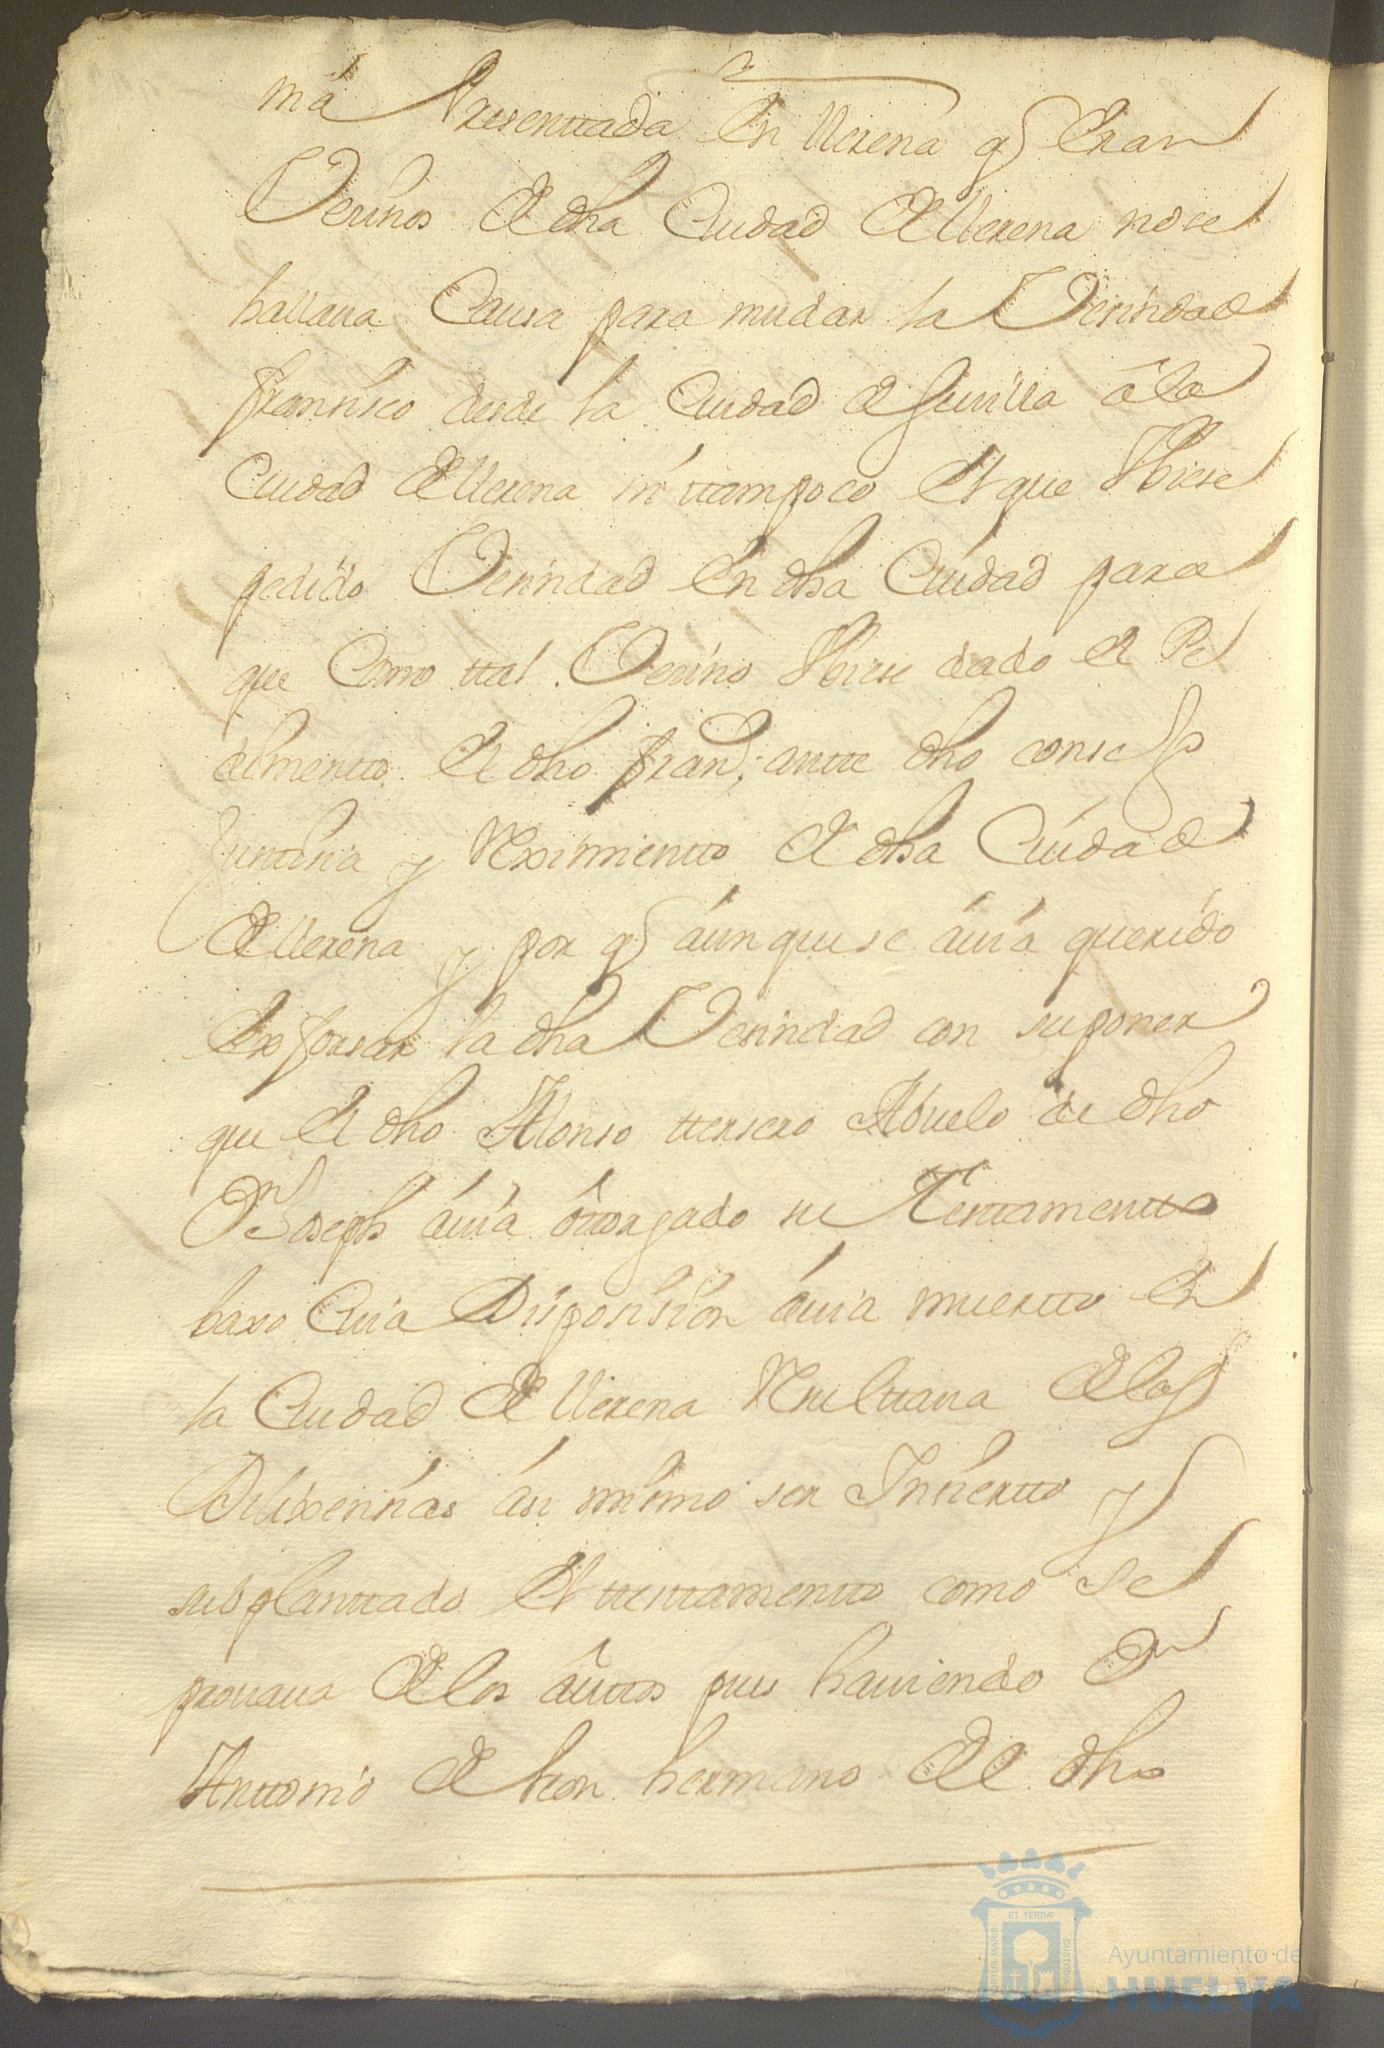 ma Presenttada En llerena q̃ Eran
Vesinos de dha Ciudad de llerena no se
hallaua Causa para mudar la Vesindad
Fransisco desde la Ciudad de Seuilla â la
Ciudad de llerena ni ttampoco El que Vbiese
pedido Vesindad En dha Ciudad para
que Como ttal Vesino Vbiese dado el Pe
dimentto el dho Franco; antte dho consejo
Justisia y Reximientto de dha Ciudad
de llerena y por q̃ áunque se áuia querido
Exforsar la dha Vesindad con suponer
que el dho Alonso ttersero Abuelo de dho
Dn Joseph áuia ôttorgado su Testtamentto
baxo Cuia Disposision áuia muertto en
la Ciudad de llerena Resulttaua de las
Dilixensias ási mismo ser Insiertto y
subplanttado El ttesttamentto como se
prouaua de los âuttos pues hauiendo Dn
Anttonio de leon hermano de el dho
Ayuntamiento de
HUELVA